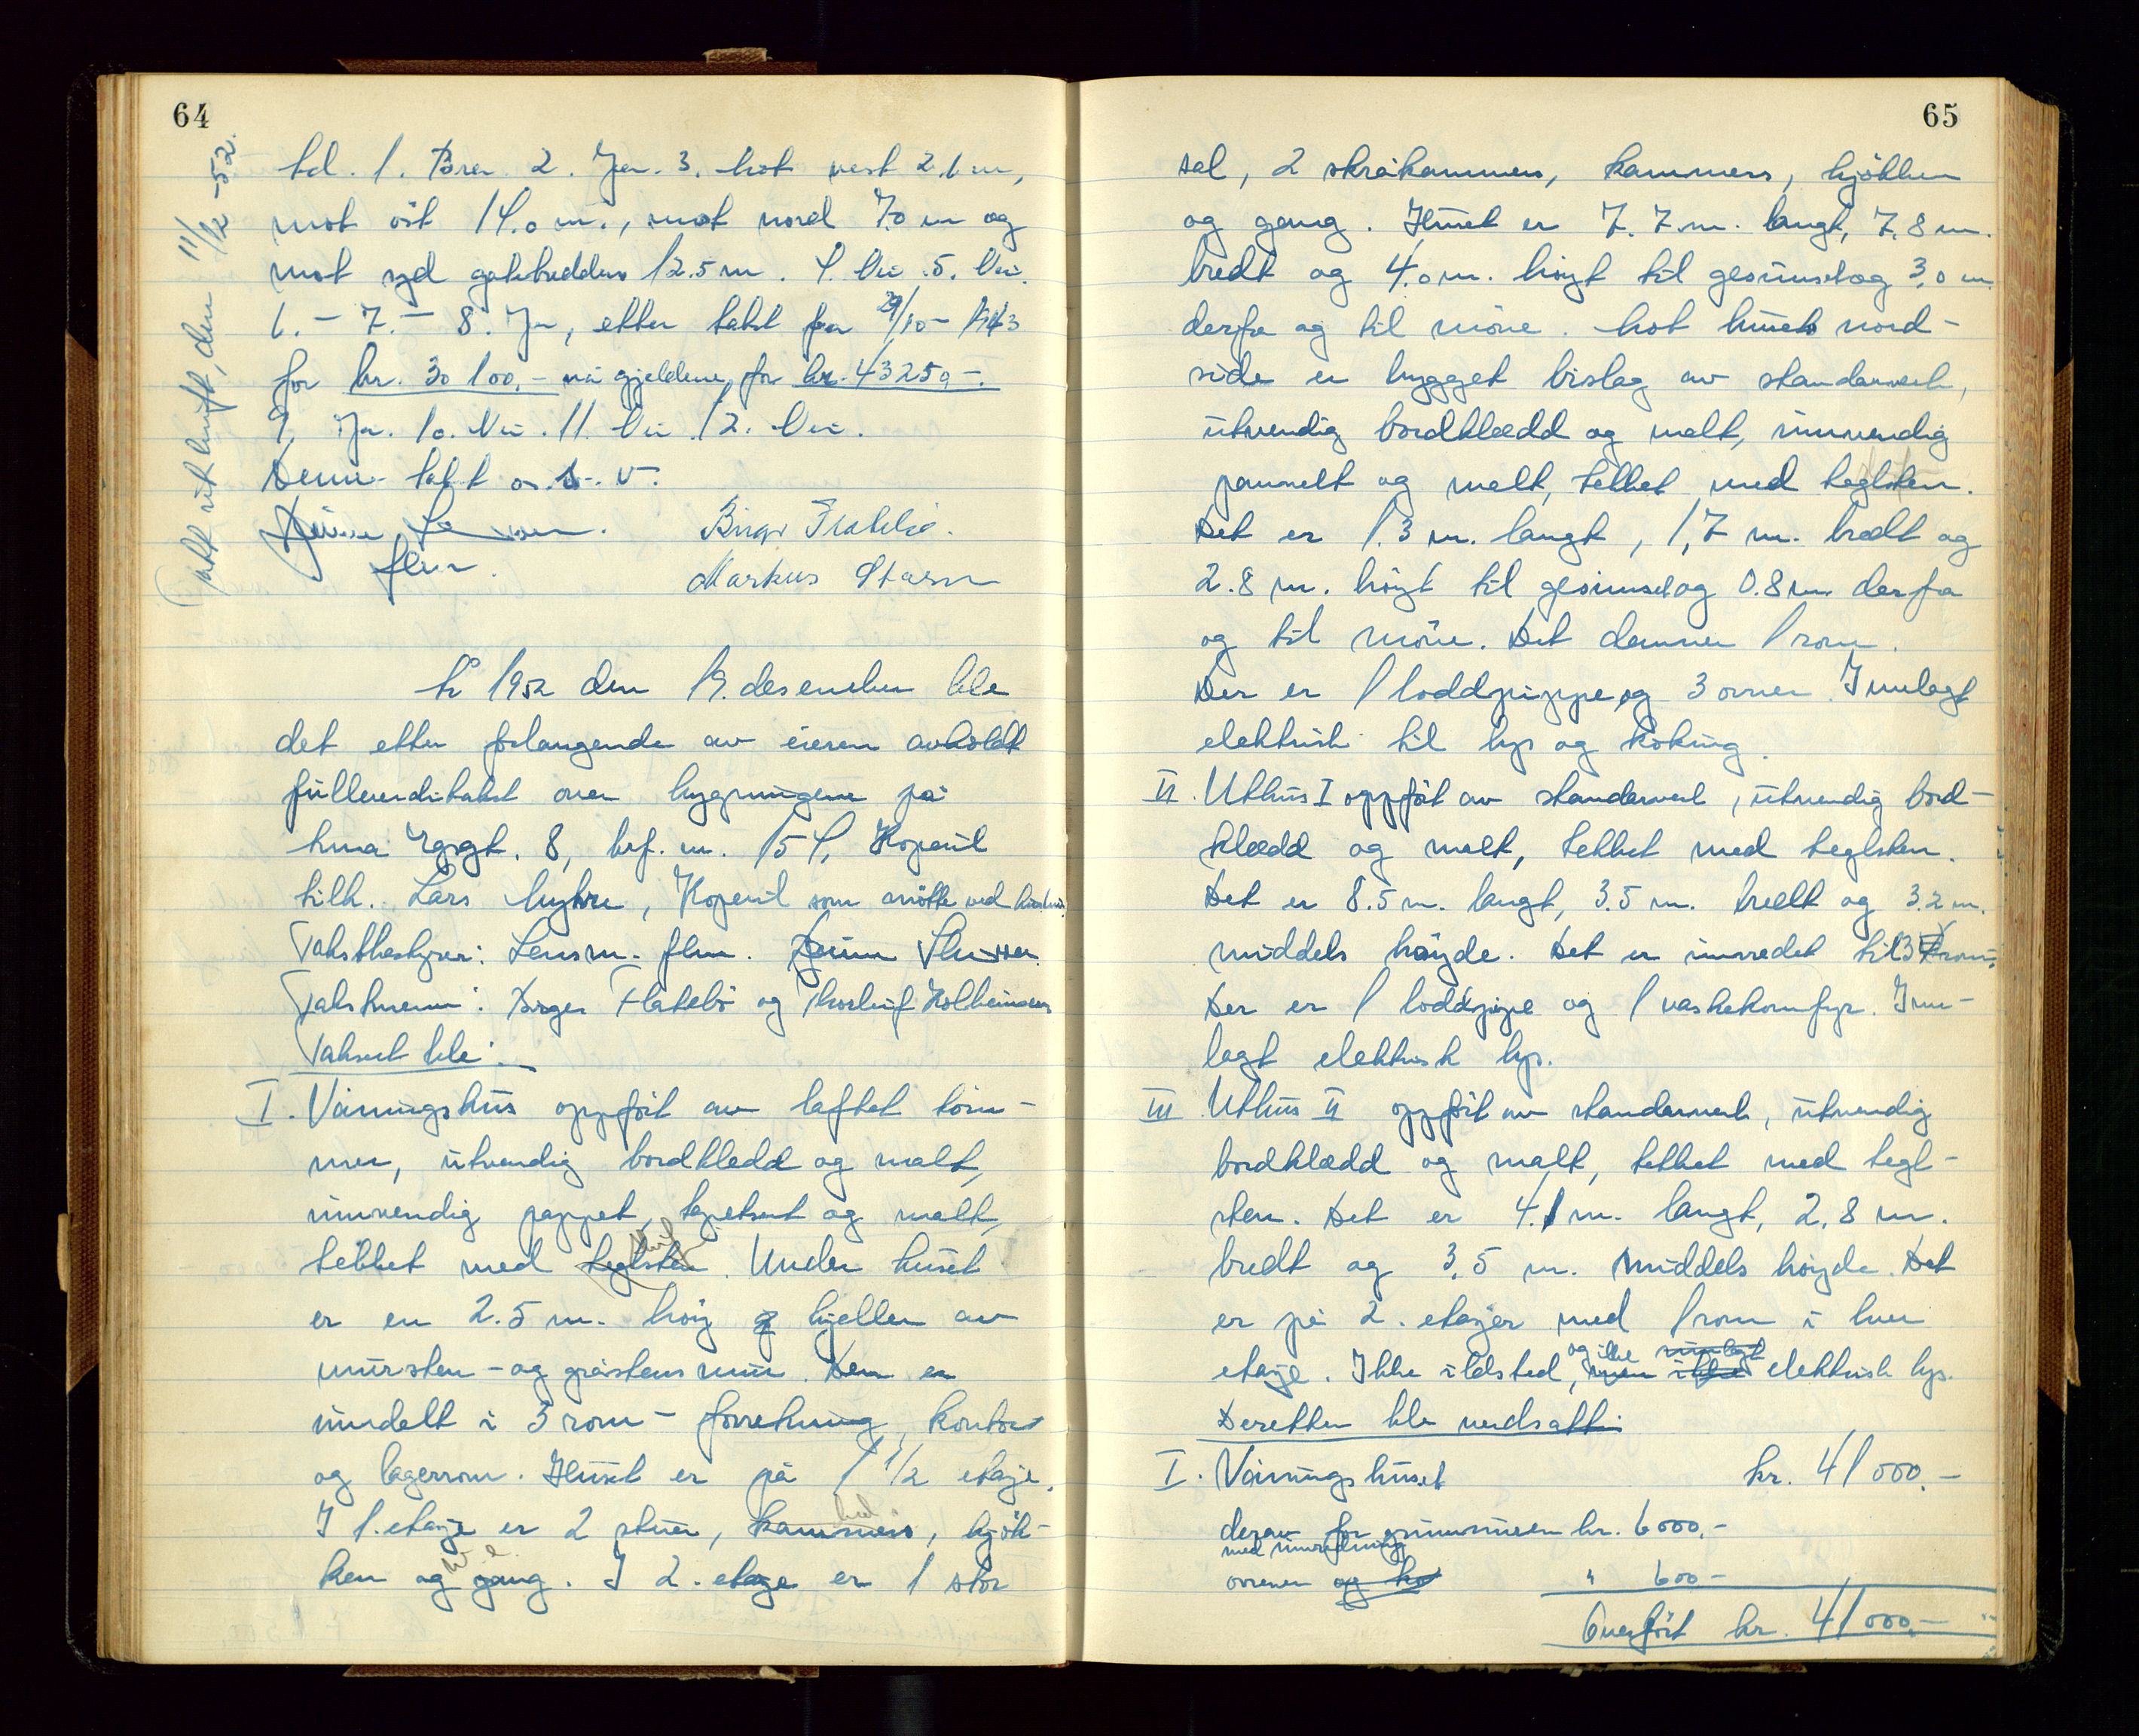 64
tatt utskrift, den 11/12-52.
td. 1. Bra. 2. Ja. 3. Mot vest 2.1 m,
mot öst 14.0 m., mot nord 7.0 m og
mot syd gatebredden 12.5 m. 4. Nei. 5. Nei.
6. - 7. - 8. Ja, etter takst fra 29/10-1943
for kr. 30 100,- nå gjeldene for kr. 43250-.
9. Ja. 10. Nei. 11. Nei. 12. Nei.
Denne takst o. s. v.
Birger Flatebö.
flm. Markus Stasm
År 1952 den 19. desember ble
det etter forlangende av eieren avholdt
fullverditakst over bygningene på
hma Egrgt. 8, brf. nr. 154, Kopervik
tilh. Lars Myhre, Kopervik som mötte ved hustru.
Takstbestyrer: Lensm. flm.
Takstmenn: Birger Flatebö og Thorleif Kolbeinsen
Takset ble:
I. Våningshus oppfört av laftet töm-
mer, utvendig bordkledd og malt,
innvendig pappet, tapetsert og malt,
tekket med teglsten skif. Under huset
er en 2.5 m. höy g kjeller av
mursten - og gråstens mur. Den er
inndelt i 3 rom - forretning, kontor
og lagerrom. Huset er på 1 1/2 etasje.
I 1. etasje er 2 stuer, kammers, kjök-
ken og gang. I 2. etasje er 1 stor
65
sal, 2 skråkammers, kammers, kjökken
og gang. Huset er 7.7 m. langt, 7,8 m.
bredt og 4.0 m. höyt til gesimset og 3,0 m.
derfra og til möne. Mot husets nord-
side er bygget bislag av standerverk,
utvendig bordklædd og malt, innvendig
pannelt og malt, tekket med teglsten.
Det er 1.3 m. langt, 1,7 m. bredt og
2.8 m. höyt til gesimset og 0.8 m derfra
og til möne. Det danner 1 rom.
Der er 1 loddpippe og 3 ovner. Innlagt
elektrisk til lys og koking.
II. Uthus I oppfört av standerverk, utvendig bord-
klædd og malt, tekket med teglsten.
Det er 8.5 m. langt, 3.5 m. bredt og 3.2 m.
middels höyde. Det er innredet til 3 rom.
Der er 1 loddpipe og 1 vaskekomfyr. Inn-
lagt elektrisk lys.
III Uthus II oppfört av standerverk, utvendig
bordklædd og malt, tekket med tegl-
sten. Det er 4.1 m. langt, 2,8 m.
bredt og 3,5 m. middels höyde. Det
er på 2. etasjer med 1 rom i hver
og ikke innlagt
etasje. Ikke ildsted, men ikke elektrisk lys.
Deretter ble verdsatt:
I. Våningshuset kr. 41 000.-
derav for grunnmuren kr. 6000,-
med innredning
ovnene og ko " 600-
Overfört kr. 41 000,-